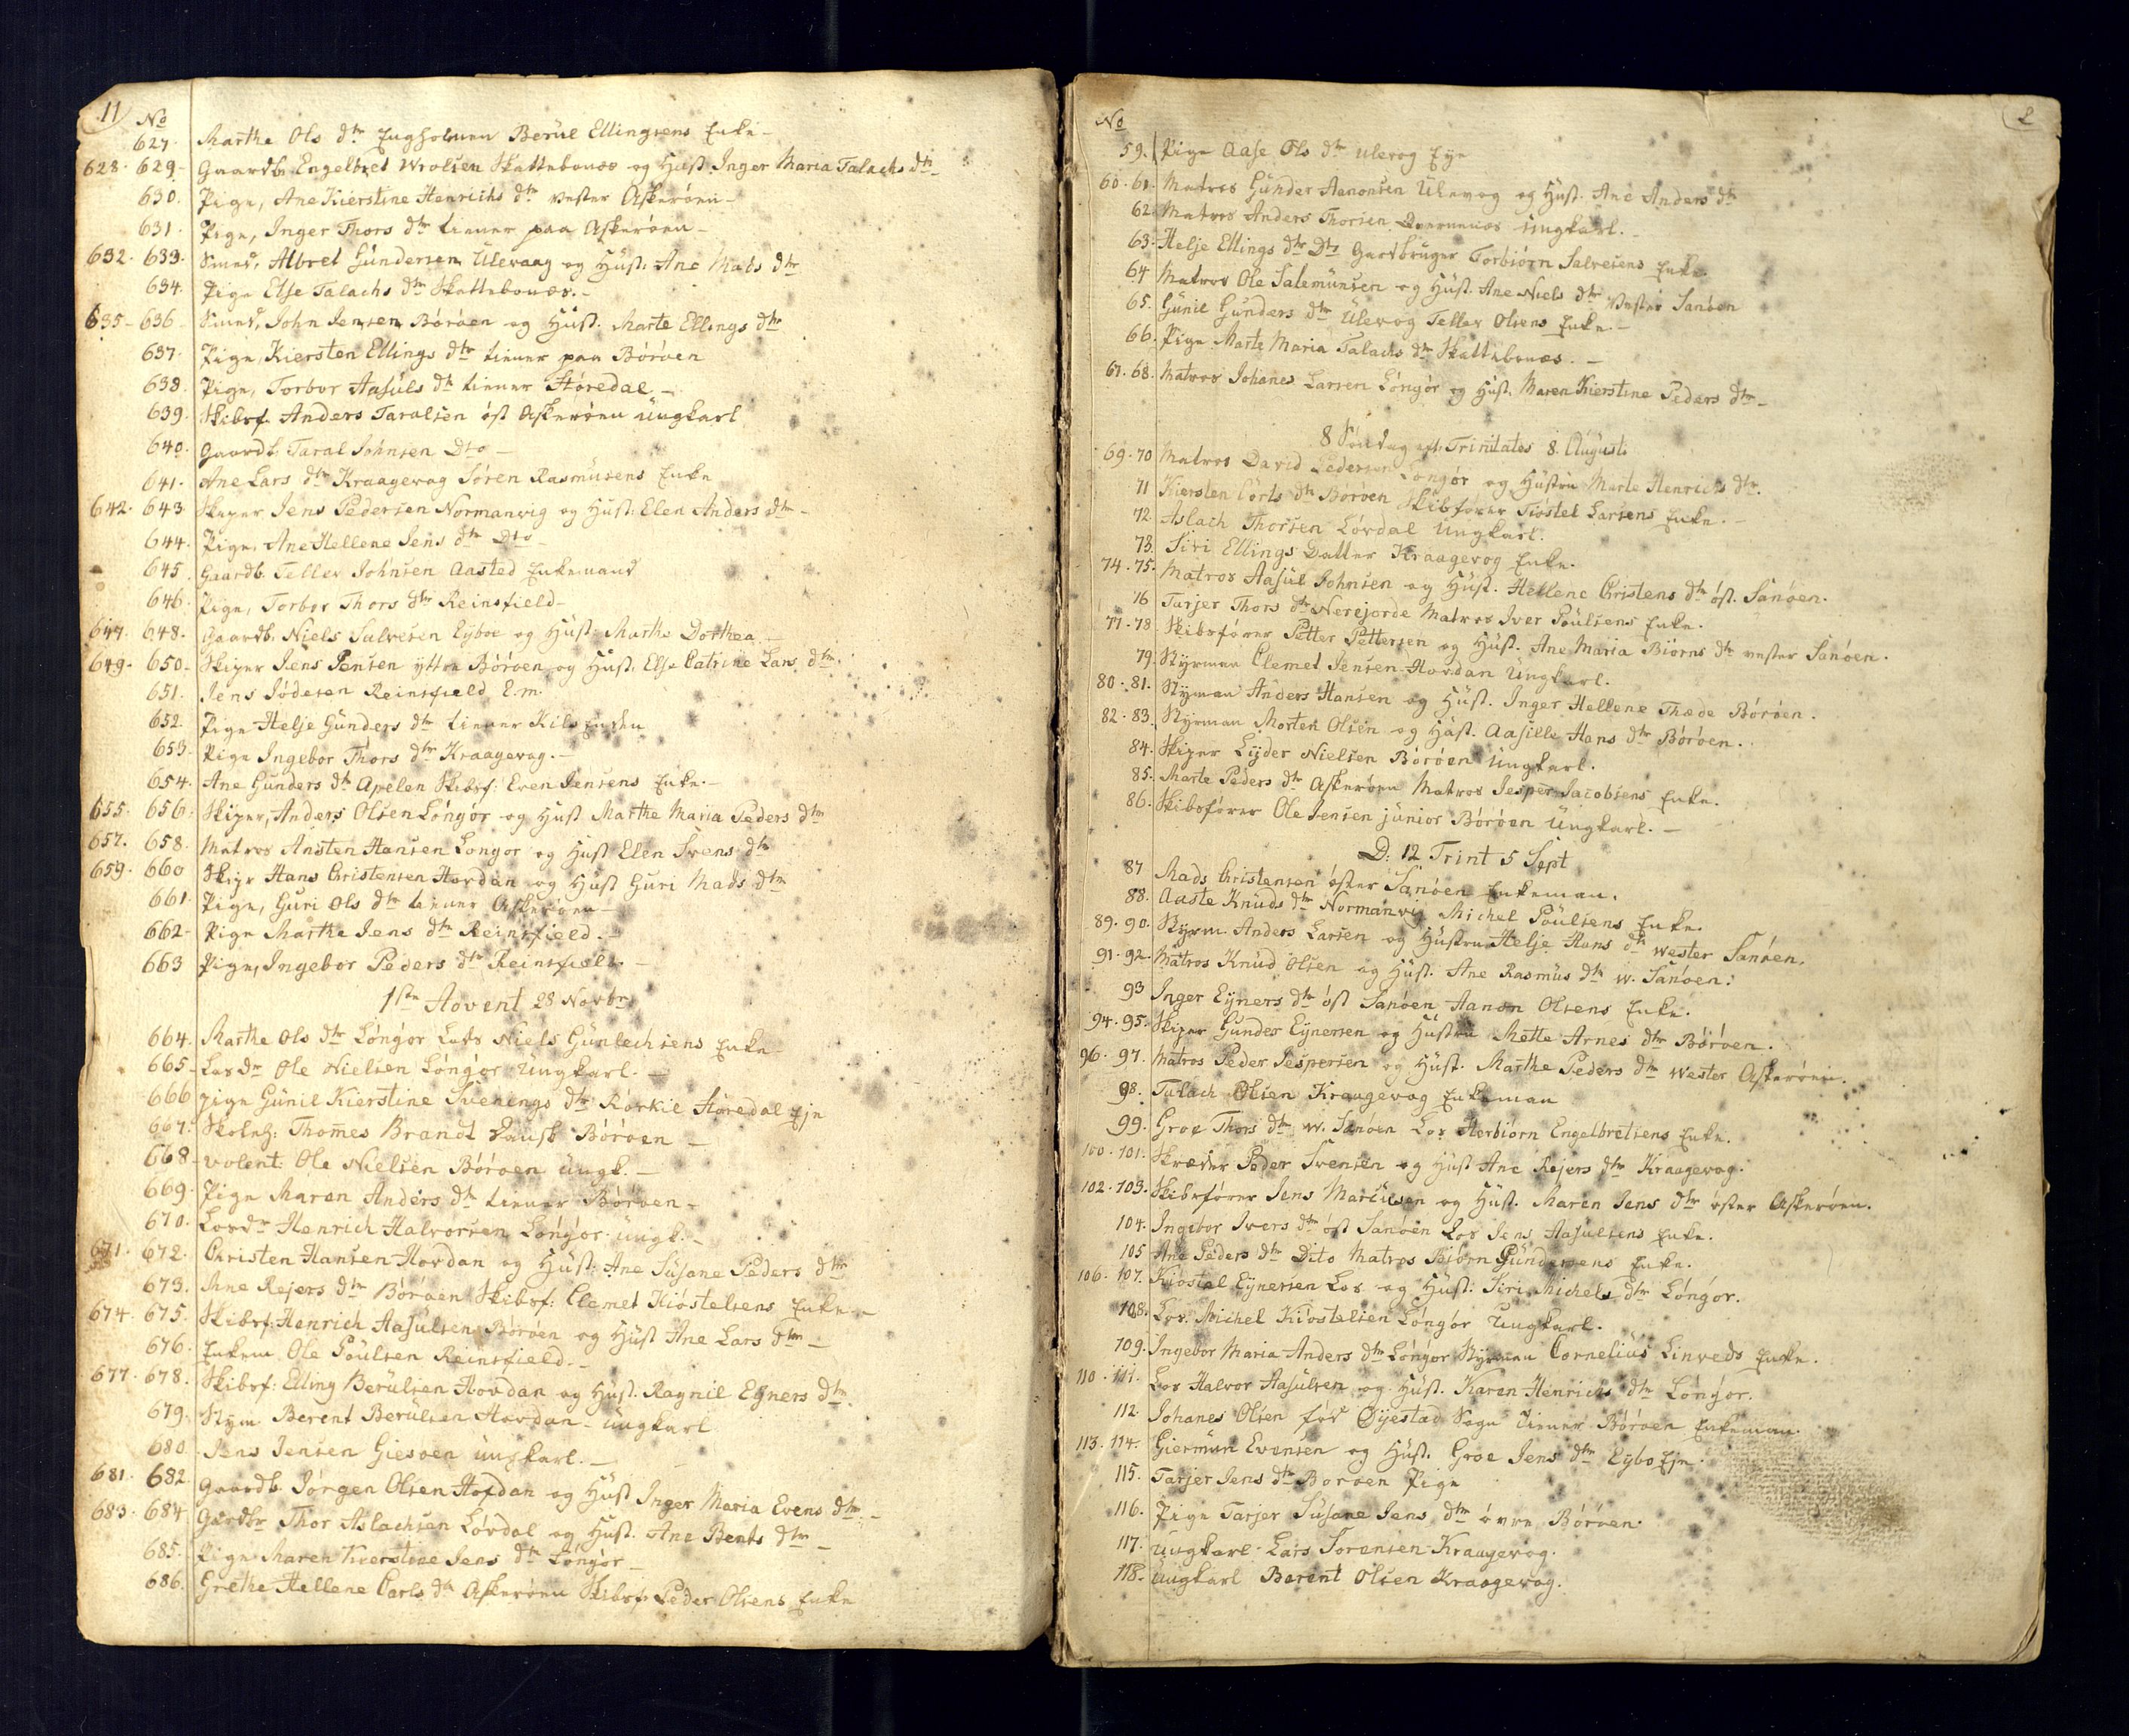 11
No
627. Marthe Ols dtr Engholmen Berül Ellingsens Enke -
628. 629. Gaardb. Engelbret Wrolsen Skattebonæs og Hust. Inger Maria Talachs dtr -
630. Pige, Ane Kierstine Henrichs dtr vester Askerøen -
631. Pige, Inger Thors dtr tiener paa Askerøen -
632. 633. Smed, Albret Gündersen Ulevaag og Hust. Ane Mads dtr
634. Pige Else Talachs dtr Skattebonæs. -
635. 636. Smed, John Jensen Børøen og Hüst. Marte Ellings dtr
637. Pige, Kiersten Ellings dtr tiener paa Børøen
638. Pige, Torbor Aasüls dtr tiener Støredal. -
639. Skibsf. Anders Taralsen øst Askerøen üngkarl
640. Gaardb. Taral Johnsen Dto -
641. Ane Lars dtr Kraagevog Søren Rasmüsens Enke
642. 643. Skiper Jens Pedersen Normanvig og Hust: Elen Anders dtr -
644. Pige, Ane Hellene Jens dtr Dto -
645. Gaardb. Tellev Johnsen Aasted Enkemand
646. Pige, Torbor Thors dtr Reinsfield -
647. 648. Gaardb. Niels Salvesen Eyboe og Hust: Marthe Dorthea -
649. 650. Skiper Jens Jensen yttre Børøen og Hüst. Else Catrine Lars dtr
651. Jens Jødesen Reinsfield E.m.
652. Pige Helje Günders dtr tiener Kilsenden
653. Pige Ingebor Thors dtr Kraagevog. -
654. Ane Günders dtr Apelen Skibsf: Even Jensens Enke. -
655. 656. Skiper, Anders Olsen Løngør og Hust Marthe Maria Peders dtr
657. 658. Matros Ansten Hansen Longør og Hust Elen Svens dtr
659. 660 Skipr Hans Christensen Hovdan og Hüst Guri Mads dtr
661. Pige, Guri Ols dtr tiener Askerøen -
662. Pige Marthe Jens dtr Reinsfield. -
663 Pige, Ingebor Peders dtr Reinsfield. -
1ste Advent 28 Novbr
664. Marthe Ols dtr Løngør Lots Niels Günlechsens Enke
665. Losdr Ole Nielsen Løngør üngkarl. -
666 pige Günil Kierstine Svenings dtr Rørkil Støredal Eje
667. Skoleh: Thomes Brandt Dansk Børøen -
668. volent: Ole Nielsen Børøen üngk. -
669. Pige Maren Anders dtr tiener Børøen -
670. Losdr Henrich Halvorsen Løngør üngk. -
671. 672. Christen Hansen Hovdan og Hüst: Ane Süsane Peders dtr
673. Ane Rejers dtr Børøen Skibsf: Clemet Kiøstelsens Enke. -
674. 675. Skibsf: Henrich Aasülsen Børøen og Hüst Ane Lars dtr -
676. Enkem Ole Poülsen Reinsfield. -
677. 678. Skibsf: Elling Berülsen Hovdan og Hüst. Ragnil Eyners dtr
679. Stym Berent Berülsen Hovdan - üngkarl
680. Jens Jensen Giesøen üngkarl. -
681. 682. Gaardb. Jørgen Olsen Hofdan og Hüst Inger Maria Evens dtr -
683. 684. Gaardbr Thor Aslachsen Løvdal og Hust. Ane Bents dtr -
685. Pige Maren Kierstine Jens dtr Løngør -
686. Grethe Hellene Carls dtr Askerøen Skibsf Peder Olsens Enke
2
No
59. Pige Aase Ols dtr Ulevog Eye
60. 61. Matros Günder Aanonsen Ulevog og Hust. Ane Anders dtr
62. Matros Anders Thorsen Qvernenæs üngkarl. -
63. Helje Ellings dtr Dto Gardbruger Torbiørn Salvesens Enke.
64 Matros Ole Salemünsen og Hüst. Ane Niels dtr Vester Sanøen
65. Günil Günders dtr Ulevog Tellev Olsens Enke. -
66. Pige Marte Maria Talachs dtr Skattebonæs. -
67. 68. Matros Johanes Larsen Løngør og Hust. Maren Kierstine Peders dtr -
8 Søndag eft: Trinitates 8. Augusti
69. 70 Matros David Pedersen Longør og Hüstru Marte Henrichs dtr.
71 Kiersten Corts dtr Børøen Skibfører Tiøstel Larsens Enke. -
72. Aslach Thorsen Løvdal üngkarl.
73. Siri Ellings Datter Kraagevog Enke.
74. 75. Matros Aasül Johnsen og Hüst. Hellene Christens dtr øst. Sanøen.
76 Tarjer Thors dtr Nerejorde Matros Iver Poülsens Enke.
77. 78 Skibsfører Petter Pettersen og Hüst. Ane Maria Biørns dtr vester Sanøen.
79. Styrman Clemet Jensen Hovdan üngkarl.
80. 81. Styman Anders Hansen og Hüst. Inger Hellene Thæde Børøen.
82. 83. Styrman Morten Olsen og Hüst. Aasille Hans dtr Børøen.
84. Skiper Lyder Nielsen Børøen üngkarl.
85. Marte Peders dtr Askerøen Matros Jesper Jacobsens Enke.
86. Skibsfører Ole Jensen jünior Børøen üngkarl. -
D: 12 Trint 5 Sept
87 Mads Christensen øster Sanøen Enkeman.
88. Aaste Knuds dtr Normanvig Michel Poülsens Enke.
89. 90. Styrm. Anders Larsen og Hüstru Helje Hans dtr Wester Sanøen.
91. 92. Matros Knüd Olsen og Hüst. Ane Rasmüs dtr W. Sanøen.
93 Inger Eyners dtr øst Sanøen Aanon Olsens Enke.
94. 95. Skiper Günder Eynersen og Hüstru Mette Arnes dtr Børøen.
96. 97. Matros Peder Jespersen og Hüst. Marthe Peders dtr Wester Askerøen.
98. Talach Olsen Kraagevog Enkeman
99. Groe Thors dtr W. Sanøen Los Herbiørn Engelbretsens Enke.
100. 101. Skræder Peder Svensen og Hüst Ane Rejers dtr Kraagevog.
102. 103. Skibsfører Jens Marcüsen og Hüst. Maren Jens dtr øster Askerøen.
104. Ingebor Ivers dtr øst Sanøen Los Jens Aasulsens Enke.
105 Ane Peders dtr Dito Matros Biørn Gündersens Enke.
106. 107. Kiøstel Eynersen Los og Hüst: Siri Michels dtr Løngør.
108. Los. Michel Kiøstelsen Løngør üngkarl.
109. Ingebor Maria Anders dtr Løngør Styrman Cornelius Linveds Enke.
110. 111. Los Halvor Aasülsen og Hüst. Karen Henrichs dtr Løngør.
112 Johanes Olsen fød Øyestad Sogn tiener Børøen Enkeman.
113. 114. Giermün Evensen og Hüst. Groe Jens dtr Eybo Eje.
115. Tarjer Jens dtr Børøen Pige
116. Pige Tarjer Süsane Jens dtr øvre Børøen.
117. üngkarl Lars Sørensen Kraagevog.
118. üngkarl Berent Olsen Kraagevog.